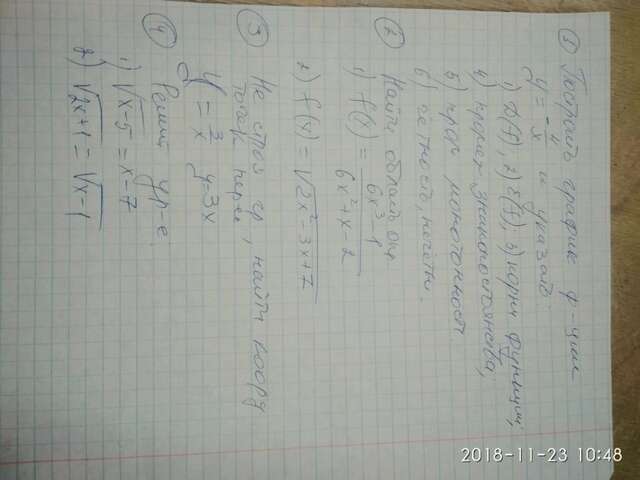 ① Построить график ф-ции
y = -4/x и указать
1) D(f), 2) E(f), 3) корни функции,
4) промеж. знакопостоянства,
5) пром монотонност
6) четность, нечетн.
② Найти область опр
1) f(x) = 6x³-1 / 6x²+x-2
2) f(x) = √2x²-3x+7
③ Не строя гр, найти коорд
точек перес
y = 3/x y=3x
④ Решить ур-е
1) √x-5 = x-7
2) √2x+1 = √x-1
2018-11-23 10:48